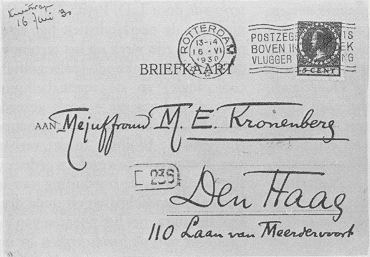 16 Juni 30
ROTTERDAM
13-14
16 VI
1930
POSTZEGE IS
BOVEN IN EK
VLUGGER NG
5 CENT
BRIEFKAART
AAN Mejuffrouw M. E. Kronenberg
C 23S
Den Haag
110 Laan van Meerdervoort